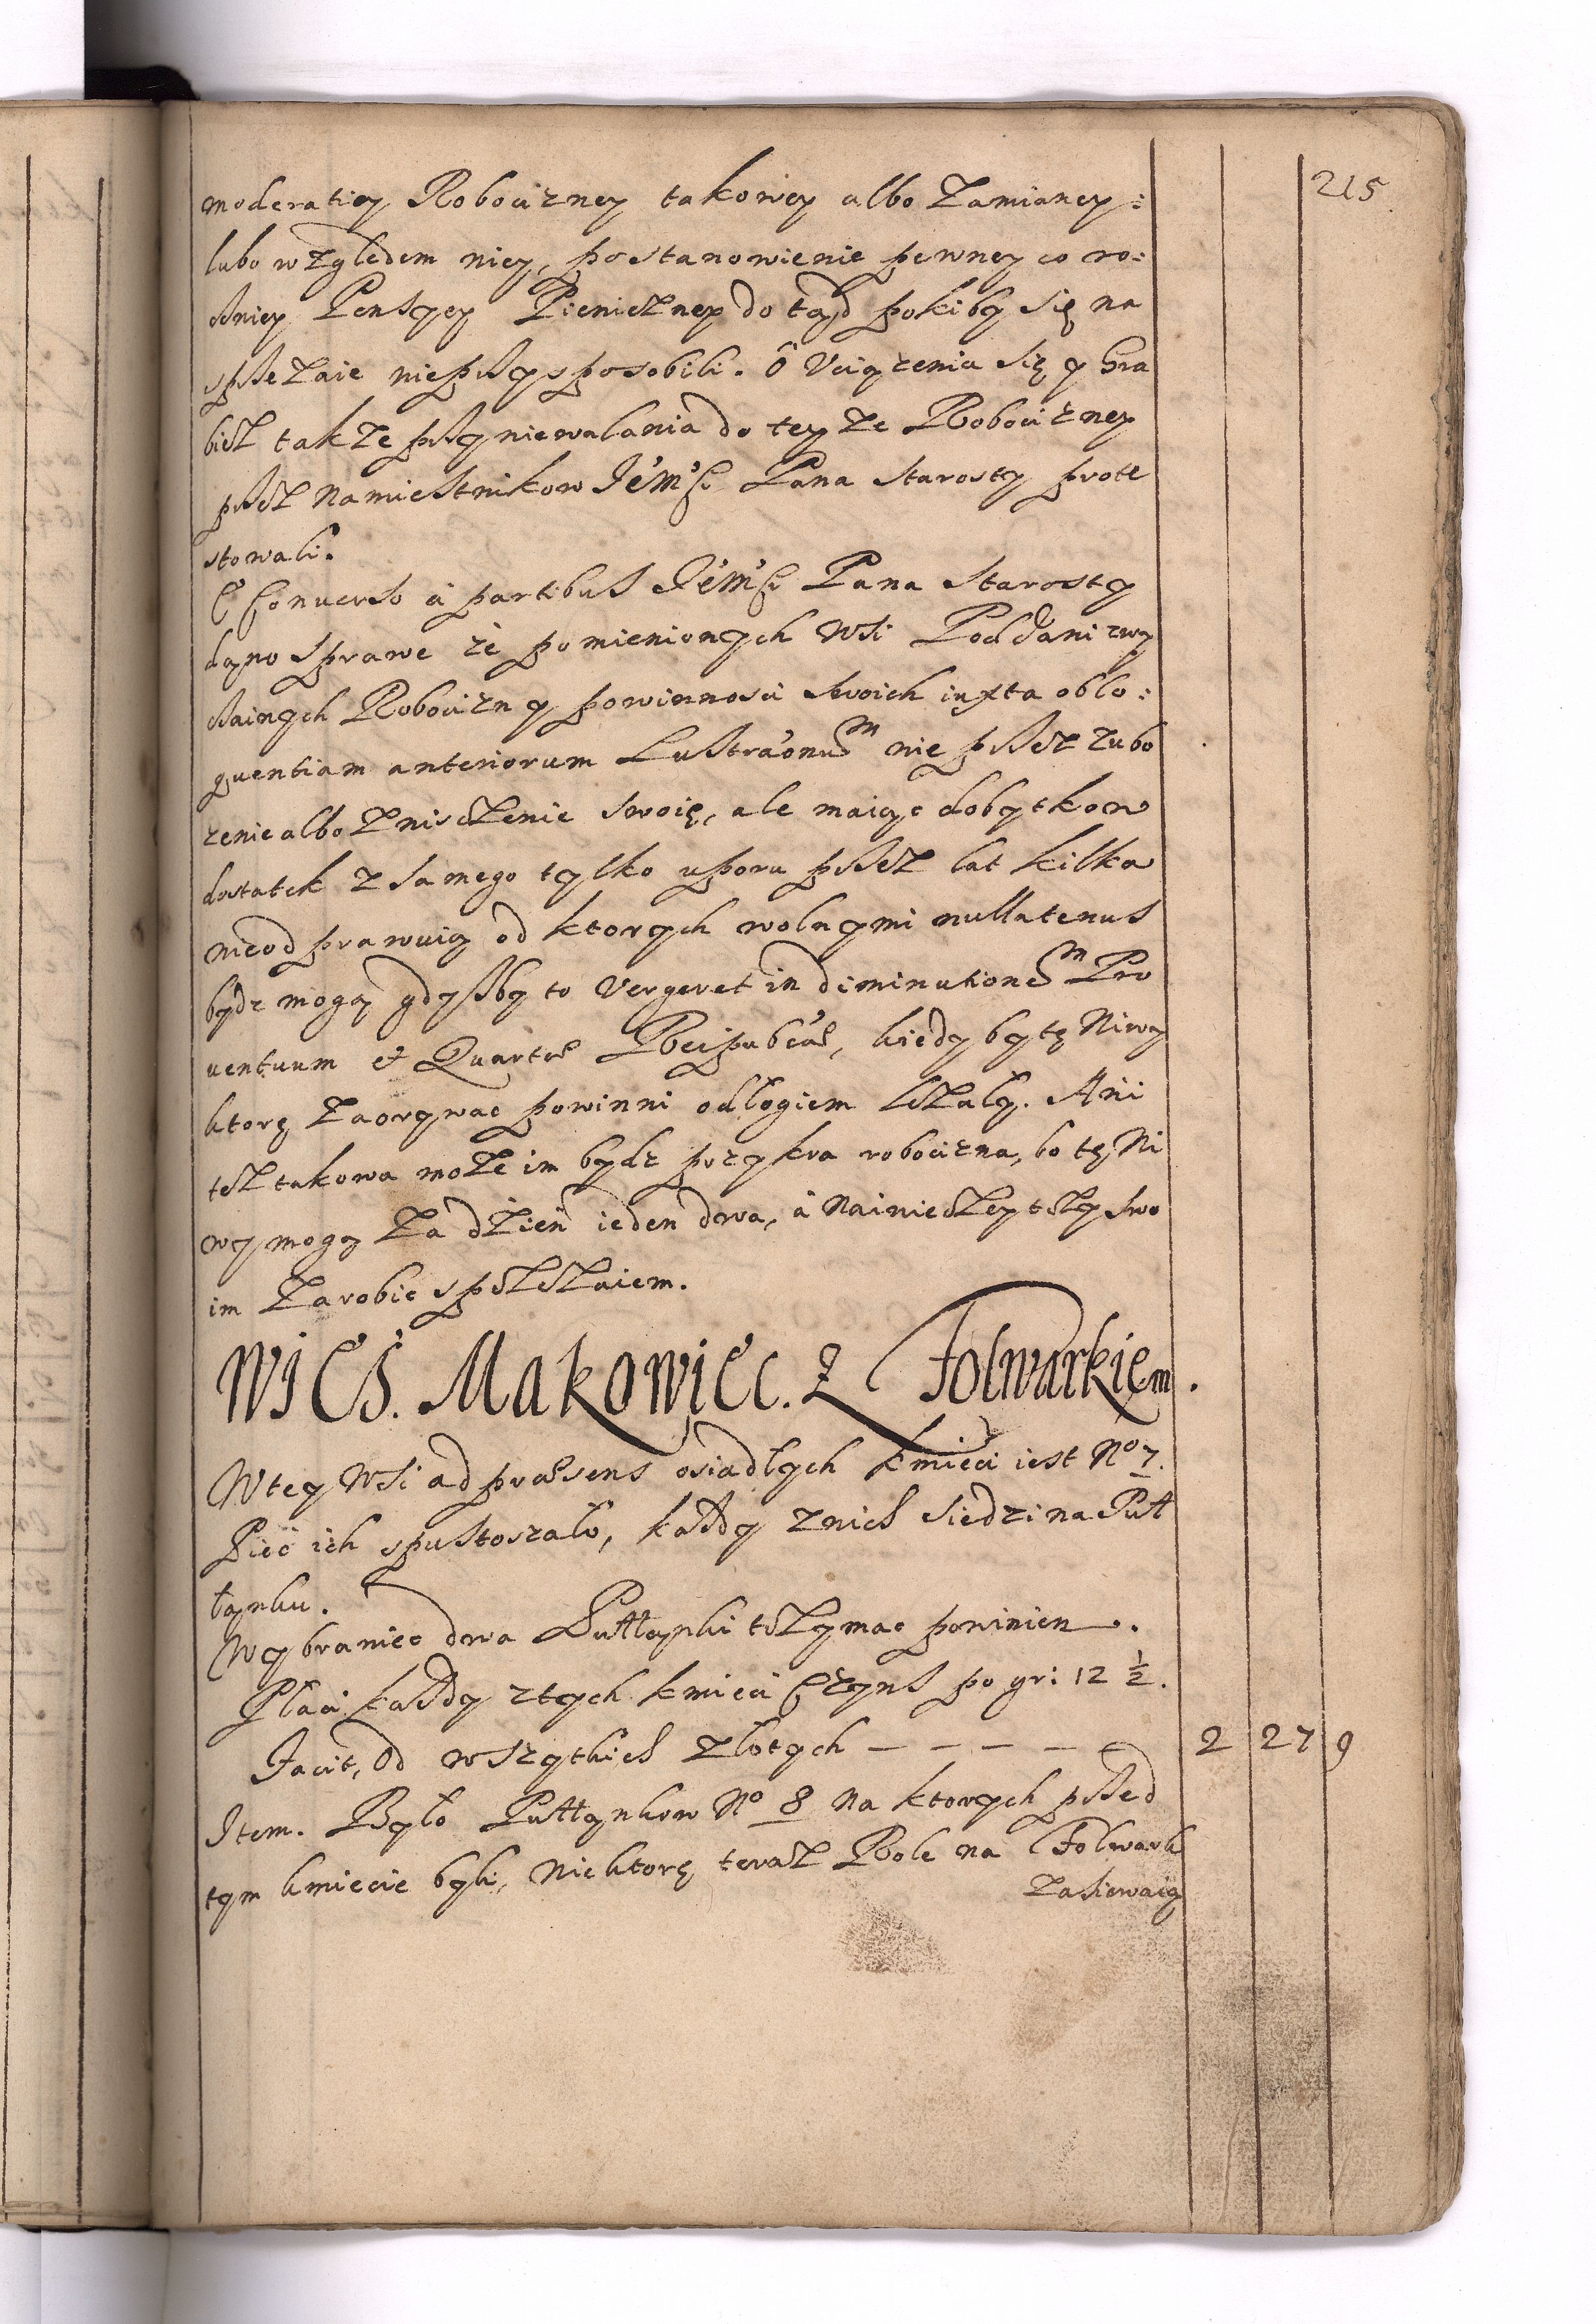 215
moderatiey Robocizney takowey albo Zamianey:
lubo wzgledem niey, postanowienie pewney co ro:
szniey Pensyey Pieniezney do tąd pokiby się na
sprzezaie nieprzysposobili. O Uciązenia się y Gra
biez takze przyniewalania do teyze Robocizney
przez Namiestnikow Jemsci Pana Starosty prote
stowali.
E Conuerso à partibus Jemsci Pana Starosty
dąno sprawe ze pomienionych Wsi Poddani zwy
czainych Robocizn y powinnosci swoich iuxta oblo:
quentiam anteriorum Lustraonum nie przez zubo
zenie albo zniszczenie swoię, ale maiąc dobytkow
dostatek z samego tylko uporu przez lat kilka
nieodprawuią od ktorych wolnymi nullatenus
bydz mogą gdyszby to Vergeret in diminutionem Pro
uentuum et Quartae Reipubcae, kiedy by tę Niwy
ktorę zaorywac powinni odłogiem lezały. Ani
tesz takowa moze im bydz przykra robocizna, bo tę Ni
wy mogą za dzien ieden dwa, à Naiwieczey trzy swo
im zarobic sprzezaiem.
WIES. Makowiec. z Folwarkiem.
W tey Wsi ad praesens osiadłych kmieci iest No 7.
Pięc ich spustoszało, kaszdy z nich siedzi na Puł
łanku.
Wybraniec dwa Pułłanki trzymac powinien.
Płaci kaszdy z tych kmieci Czyns po gr: 12 ½.
Facit, Od wszytkich złotych — — — — — 2 27 9
Item. Było Pułłankow No 8 Na ktorych przed
tym kmiecie byli, Niektorę teraz Role na Folwark
Zasiewaią